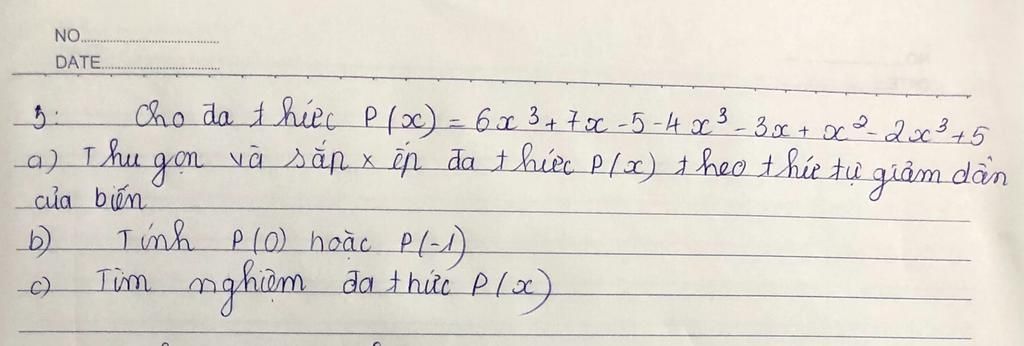 NO.
DATE
3: Cho đa thức P(x) = 6x³ + 7x - 5 - 4x³ - 3x + x² - 2x³ + 5
a) Thu gọn và sắp xếp đa thức P(x) theo thứ tự giảm dần
của biến
b) Tính P(0) hoặc P(-1)
c) Tìm nghiệm đa thức P(x)